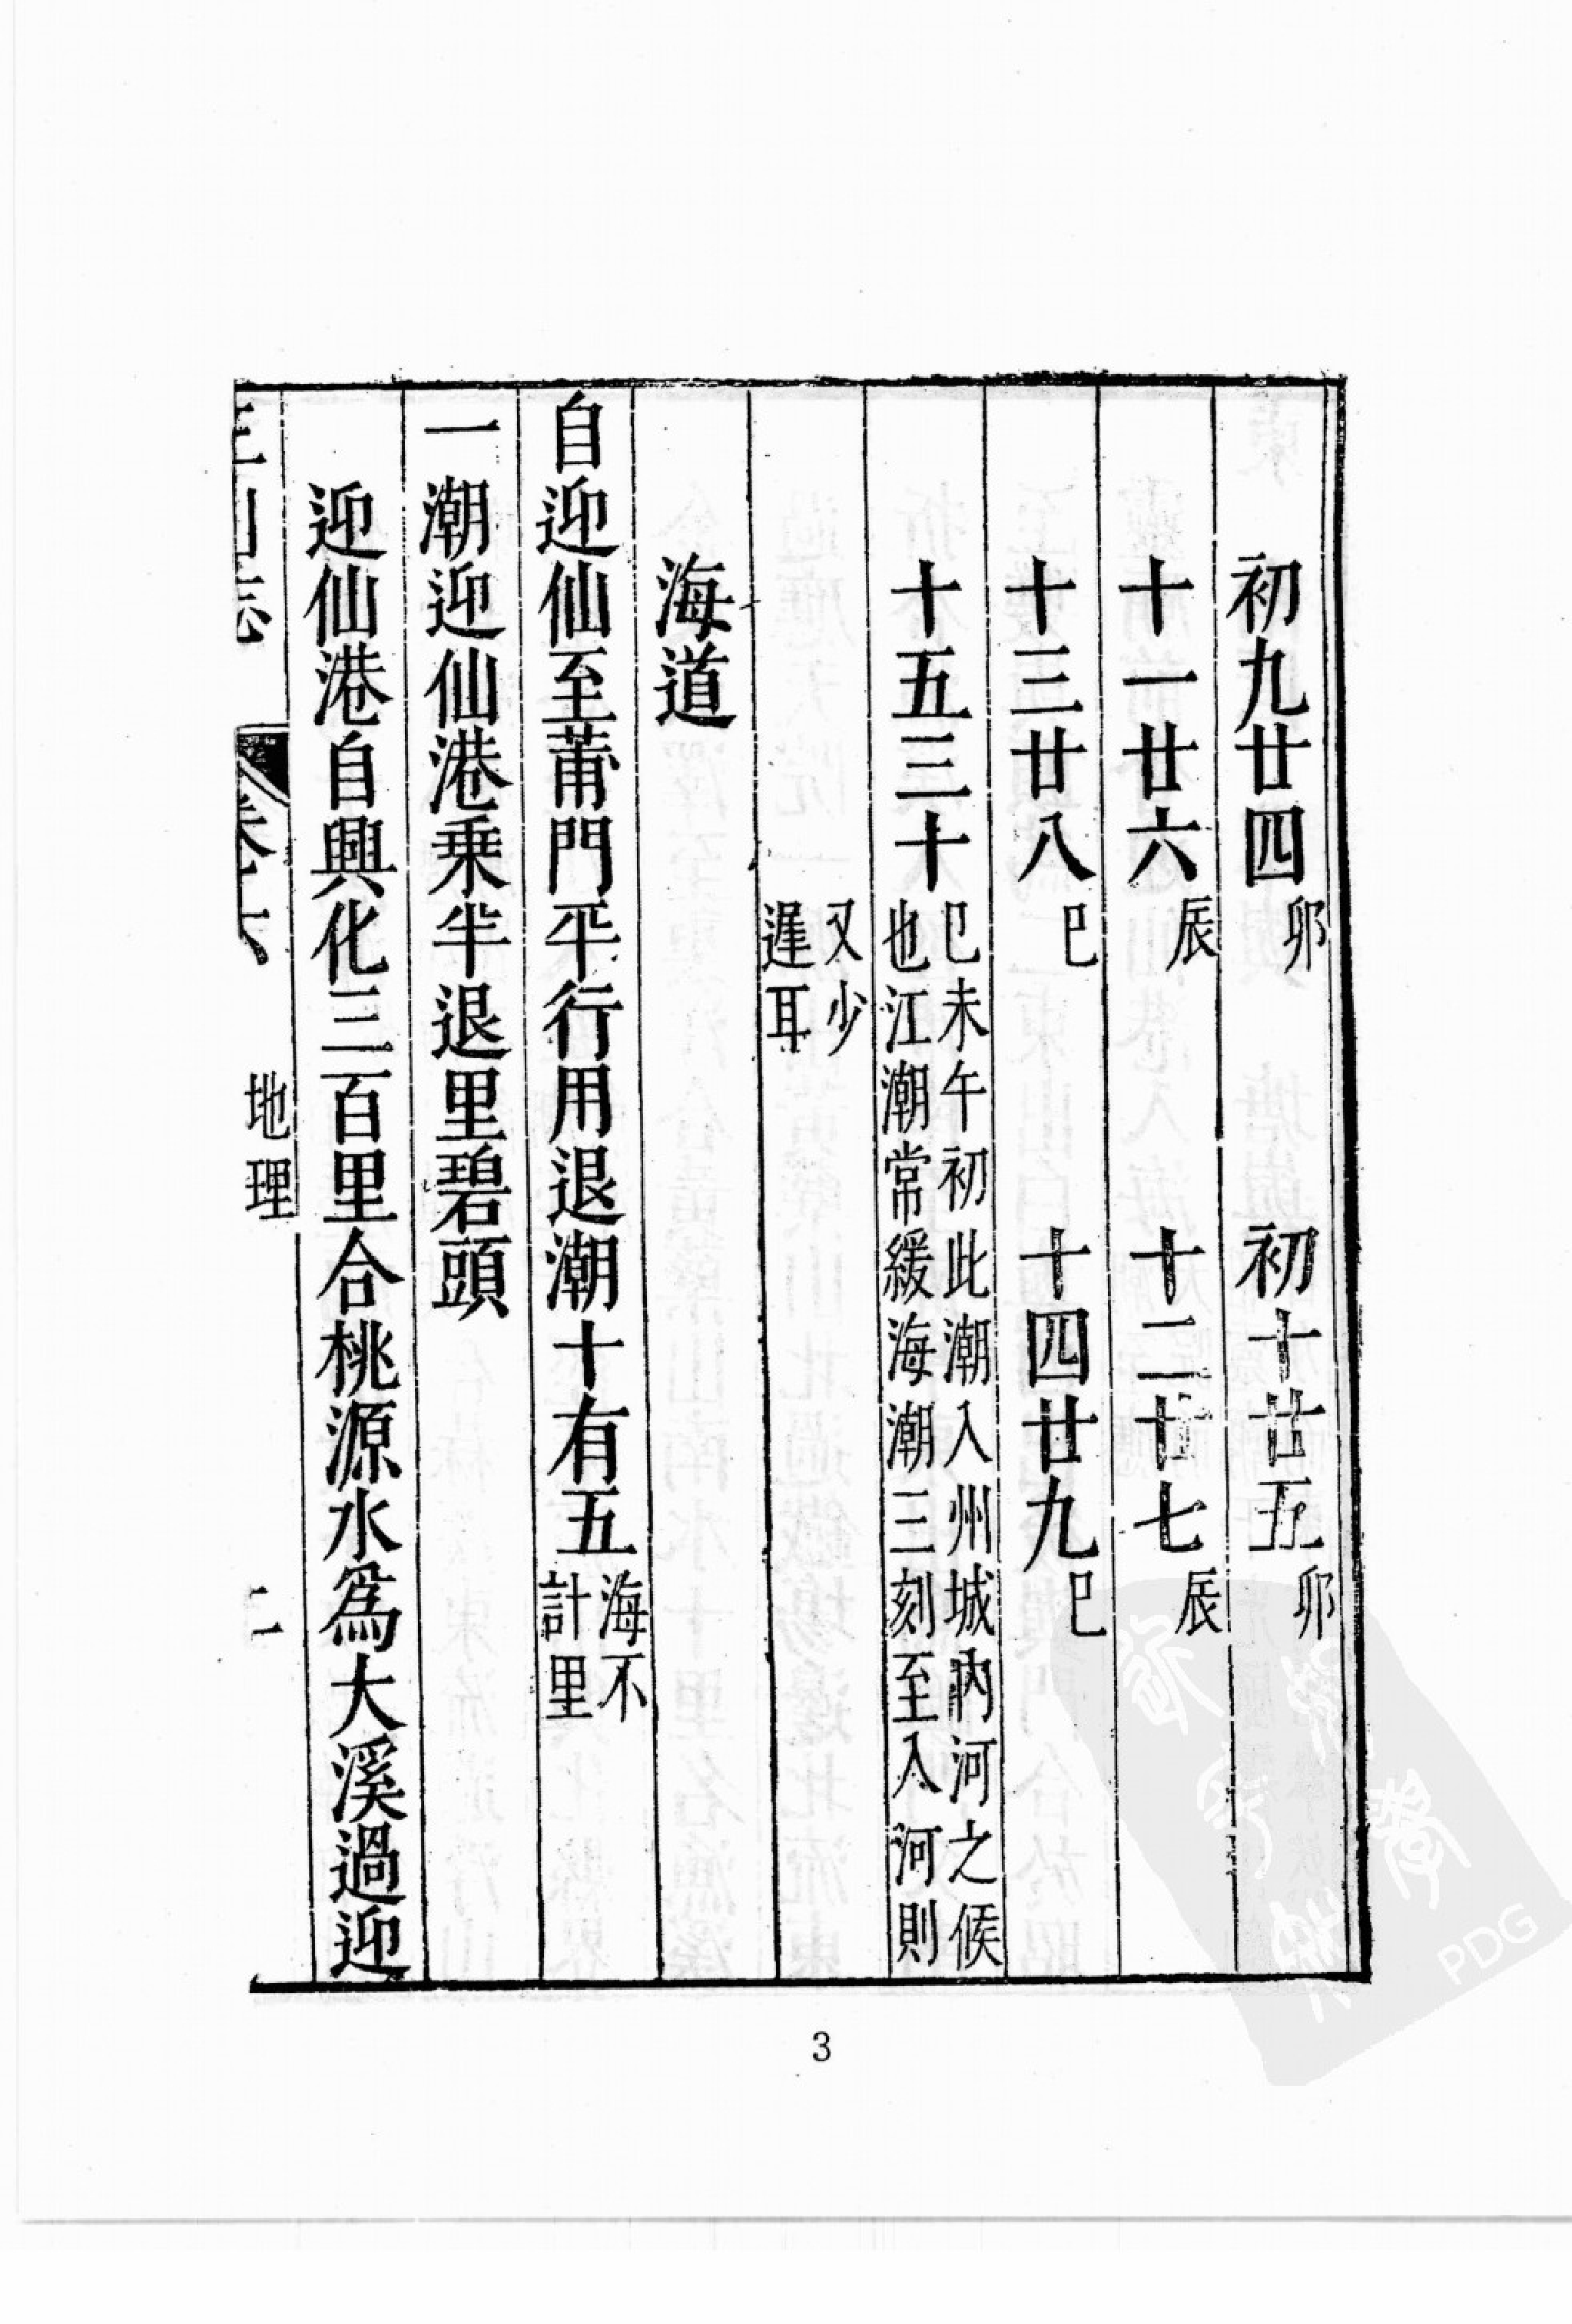 初九廿四卯　初十廿五卯
十一廿六辰　十二廿七辰
十三廿八巳　十四廿九巳
十五三十巳未午初此潮入州城內河之候
也江潮常緩海潮三刻至入河則
又少
遲耳
海道
自迎仙至莆門平行用退潮十有五海不
計里
一潮迎仙港乗半退里碧頭
迎仙港自興化三百里合桃源水爲大溪過迎
三山志　卷六　地理　二
3
PDG